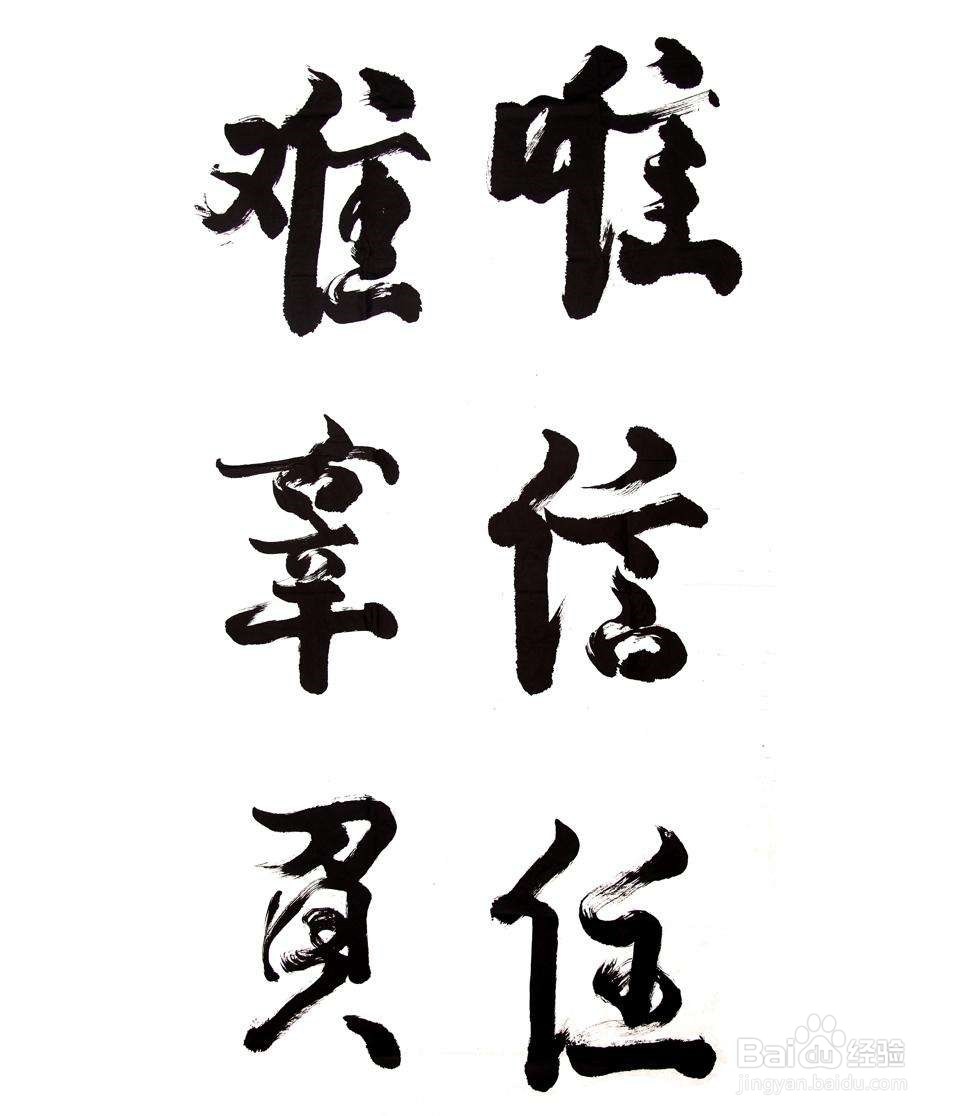 唯信任
难辜负
Baidu经验
jingyan.baidu.com